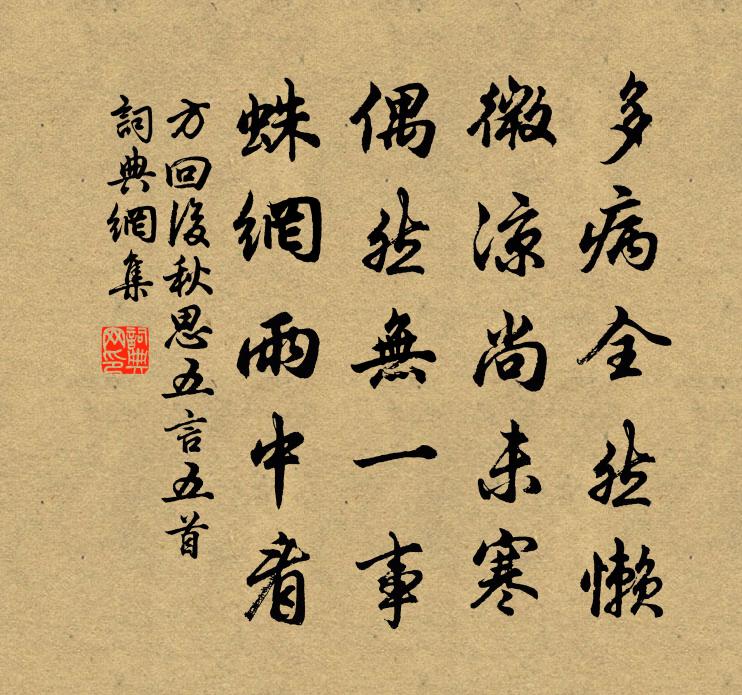 多病全然懶
微涼尚未寒
偶然無一事
蛛網雨中看
方回後秋思五言五首
詞典網集
詞典網印